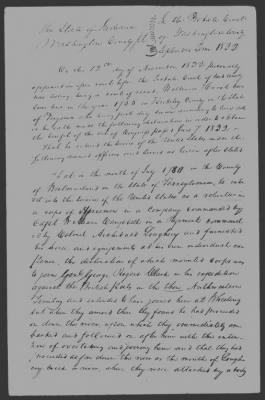 The State of Indiana
Washington County Sct
In the Probate Court
of Washington County
September Term 1833
On the 12th day of November 1833 personally
appeared in open court before the Probate Court of
now sitting being a court of record, William
born in the year 1760 in Berkeley County in the State
of Virginia who being first duly sworn according to law doth
on his oath make the following declaration in order to obtain
the benefit of the act of Congress passed June 7 1832.
That he entered the service of the United States under the
following named officers and served as herein after stated
That in the month of July 1780 in the County
of Westmoreland in the State of Pennsylvania, he
the service of the United States as a volunteer in
a corps of Horsemen in a Company commanded by
Capt. Campbell in a Regiment command
ed by Colonel Archibald Loughry and furnished
his horse and equipments at his own individual ex
pense, the destination of which mounted corps was
to join Genl George Rogers Clark in his expedition
against the British posts in the then Northwestern
Territory and intended to have joined him at Wheeling
but when they arrived there they found he had proceeded
on down the river upon which they immediately em
barked and followed on after him with the inten
tion of overtaking and joining him and that they had
proceeded as far down the river as the mouth of Lough
rys creek when they were attacked by a body